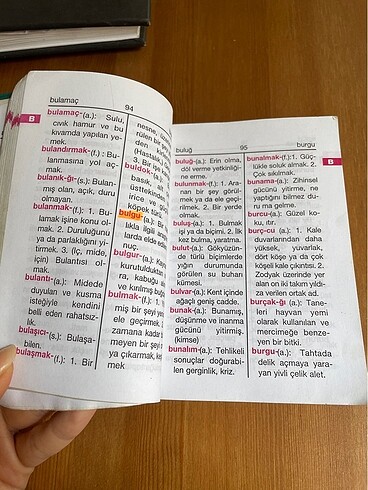 bulamaç
94
bulamaç-(a.): Sulu,
cıvık hamur ve bu
kıvamda yapılan ye-
mek.
bulandırmak-(f.): Bu-
lanmasına yol aç-
mak.
bulanık-ğı-(s.): Bulan-
mış olan, açık, duru
olmayan.
bulanmak-(f.): 1. Bu-
lamak işine konu ol-
mak. 2. Duruluğunu
ya da parlaklığını yi-
tirmek. 3. (İç, mide,
için) Bulantısı ol-
mak.
bulantı-(a.): Midede
duyulan ve kusma
isteğiyle kendini
belli eden rahatsız-
lık.
bulaşıcı-(s.): Bulaşa-
bilen.
bulaşmak-(f.): 1. Bir
B
nesne,
rülen bir
den
(Hastalık
3. Bir işe
buldok-(a.):
basık, alt
üsttekinden
irice ve
köpek türü.
bulgu-(a.): Bir
lıkla ilgili
larda elde
nuç.
bulgur-(a.):
kurutulduktan
ra, kabuğu
ve kırılmış buğ
bulmak-(f.): 1.
mış bir şeyi ye
ele geçirmek.
zamana kadar b
meyen bir şeyi
ya çıkarmak, ke
mek
buluğ
95
burgu
buluğ-(a.): Erin olma,
döl verme yetkinliği-
ne erme.
bulunmak-(f.): 1. Ara-
nan bir şey görül-
mek ya da ele geçi-
rilmek. 2. Bir yerde
olmak.
buluş-(a.): 1. Bulmak
işi ya da biçimi. 2. İlk
kez bulma, yaratma.
bulut-(a.): Gökyüzün-
de türlü biçimlerde
yığın durumunda
görülen su buharı
kümesi.
bulvar-(a.): Kent içinde
ağaçlı geniş cadde.
bunak-(a.): Bunamış,
düşünme ve inanma
gücünü yitirmiş.
(kimse)
bunalım-(a.): Tehlikeli
sonuçlar doğurabi-
len gerginlik, kriz.
bunalmak-(f.):1. Güç-
lükle soluk almak. 2.
Çok sıkılmak.
bunama-(a.): Zihinsel
gücünü yitirme, ne
yaptığını bilmez du-
ru ma gelme.
burcu-(a.): Güzel ko-
ku, ıtır.
burç-cu (a.): 1. Kale
duvarlarından daha
yüksek, yuvarlak,
dört köşe ya da çok
köşeli kale çıkıntısı. 2.
Zodyak üzerinde yer
alan on iki takım yıldı-
za verilen ortak ad.
burçak-ğı (a.): Tane-
leri hayvan yemi
olarak kullanılan ve
mercimeğe benze-
yen bir bitki.
burgu-(a.): Tahtada
delik açmaya yara-
yan yivli çelik alet.
B